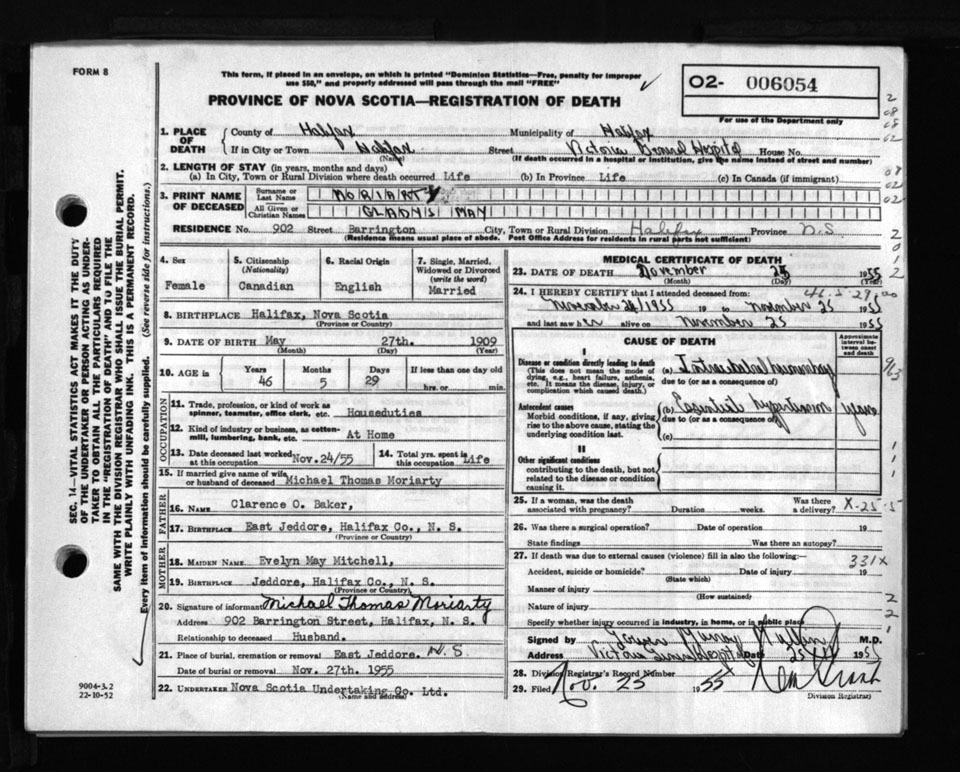 FORM 8
This form, if placed in an envelope, on which is printed "Dominion Statistics—Free, penalty for improper
use $50," and properly addressed will pass through the mail "FREE"
02- 006054
For use of the Department only
PROVINCE OF NOVA SCOTIA—REGISTRATION OF DEATH
1. PLACE OF DEATH
County of Halifax Municipality of Halifax
If in City or Town Halifax Street Victoria General Hospital House No.
(Name) (If death occurred in a hospital or institution, give the name instead of street and number)
2. LENGTH OF STAY (in years, months and days)
(a) In City, Town or Rural Division where death occurred Life (b) In Province Life (c) In Canada (if immigrant)
3. PRINT NAME OF DECEASED
Surname or Last Name MORIARTY
All Given or Christian Names GLADYS MAY
RESIDENCE No. 902 Street Barrington City, Town or Rural Division Halifax Province N.S.
(Residence means usual place of abode. Post Office Address for residents in rural parts not sufficient)
4. Sex
Female
5. Citizenship (Nationality)
Canadian
6. Racial Origin
English
7. Single, Married, Widowed or Divorced (write the word)
Married
8. BIRTHPLACE Halifax, Nova Scotia
(Province or Country)
9. DATE OF BIRTH May 27th. 1909
(Month) (Day) (Year)
10. AGE in Years 46 Months 5 Days 29 If less than one day old hrs. or min.
OCCUPATION
11. Trade, profession, or kind of work as spinner, teamster, office clerk, etc. Houseduties
12. Kind of industry or business, as cotton-mill, lumbering, bank, etc. At Home
13. Date deceased last worked at this occupation Nov.24/55
14. Total yrs. spent in this occupation Life
15. If married give name of wife or husband of deceased Michael Thomas Moriarty
FATHER
16. NAME Clarence O. Baker,
17. BIRTHPLACE East Jeddore, Halifax Co., N. S.
(Province or Country)
MOTHER
18. MAIDEN NAME Evelyn May Mitchell,
19. BIRTHPLACE Jeddore, Halifax Co., N. S.
(Province or Country)
20. Signature of informant Michael Thomas Moriarty
Address 902 Barrington Street, Halifax, N. S.
Relationship to deceased Husband.
21. Place of burial, cremation or removal East Jeddore. N.S
Date of burial or removal Nov. 27th. 1955
22. UNDERTAKER Nova Scotia Undertaking Co. Ltd.
(Name and address)
MEDICAL CERTIFICATE OF DEATH
23. DATE OF DEATH November 25 1955
(Month) (Day)
46-5-29
24. I HEREBY CERTIFY that I attended deceased from:
November 24 1955 to November 25 1955
and last saw her alive on November 25 1955
CAUSE OF DEATH
Approximate interval between onset and death
I
Disease or condition directly leading to death
(This does not mean the mode of dying, e.g., heart failure, asthenia, etc. It means the disease, injury, or complication which caused death.)
(a) Intracerebral hemorrhage
due to (or as a consequence of)
Antecedent causes
Morbid conditions, if any, giving rise to the above cause, stating the underlying condition last.
(b) Essential hypertension years
due to (or as a consequence of)
(c)
II
Other significant conditions
contributing to the death, but not related to the disease or condition causing it.
25. If a woman, was the death associated with pregnancy? Duration weeks. Was there a delivery? X-25-5
26. Was there a surgical operation? Date of operation 19
State findings Was there an autopsy?
27. If death was due to external causes (violence) fill in also the following:—
331X
Accident, suicide or homicide? Date of injury 19
(State which)
Manner of injury
(How sustained)
Nature of injury
Specify whether injury occurred in industry, in home, or in public place
Signed by M.D.
Address Victoria General Hospital Date 25 1955
28. Division Registrar's Record Number
29. Filed Nov. 25 1955
Division Registrar)
SEC. 14—VITAL STATISTICS ACT MAKES IT THE DUTY
OF THE UNDERTAKER OR PERSON ACTING AS UNDER-
TAKER TO OBTAIN ALL THE PARTICULARS REQUIRED
IN THE "REGISTRATION OF DEATH" AND TO FILE THE
SAME WITH THE DIVISION REGISTRAR WHO SHALL ISSUE THE BURIAL PERMIT.
WRITE PLAINLY WITH UNFADING INK. THIS IS A PERMANENT RECORD.
Every item of information should be carefully supplied. (See reverse side for instructions.)
9004-3.2
22-10-52